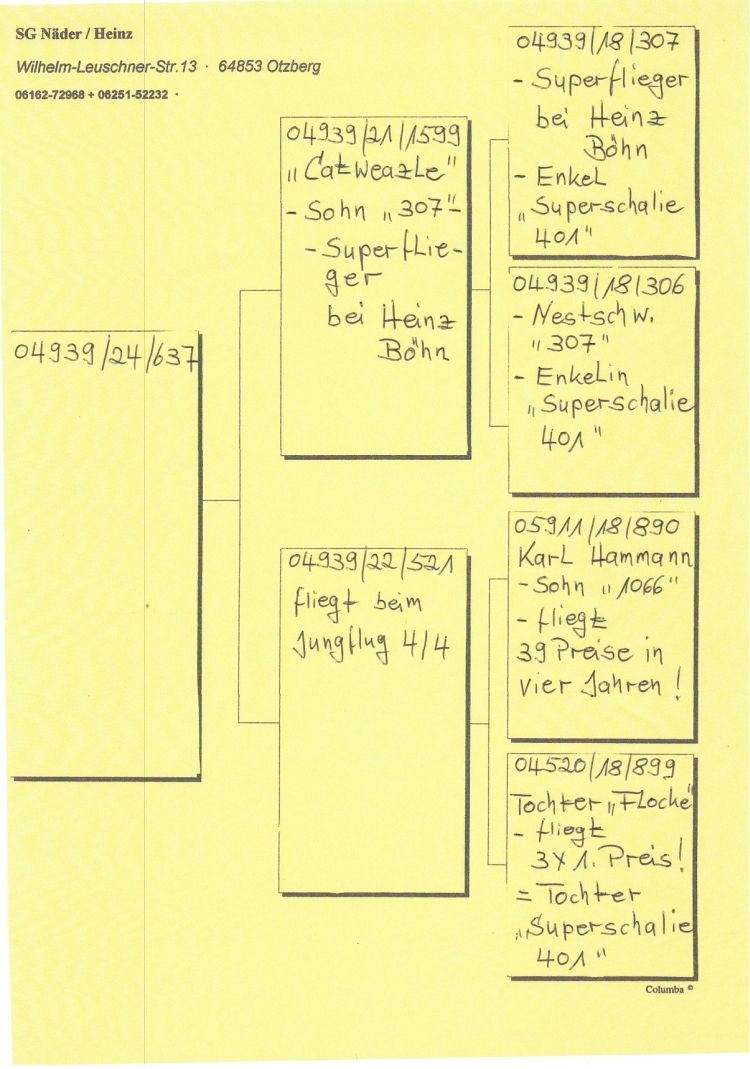 SG Näder / Heinz
Wilhelm-Leuschner-Str.13 · 64853 Otzberg
06162-72968 + 06251-52232 ·
04939/24/637
04939/21/1599
„Catweazle"
- Sohn „307"-
- Superflie-
ger
bei Heinz
Böhn
04939/22/521
fliegt beim
Jungflug 4/4
04939/18/307
- Superflieger
bei Heinz
Böhn
- Enkel
„Superschalie
401"
04939/18/306
- Nestschw.
„307"
- Enkelin
„Superschalie
401"
05911/18/890
Karl Hammann
- Sohn „1066"
- fliegt
39 Preise in
vier Jahren!
04520/18/899
Tochter „Flocke"
- fliegt
3X1. Preis!
= Tochter
„Superschalie
401"
Columba ©